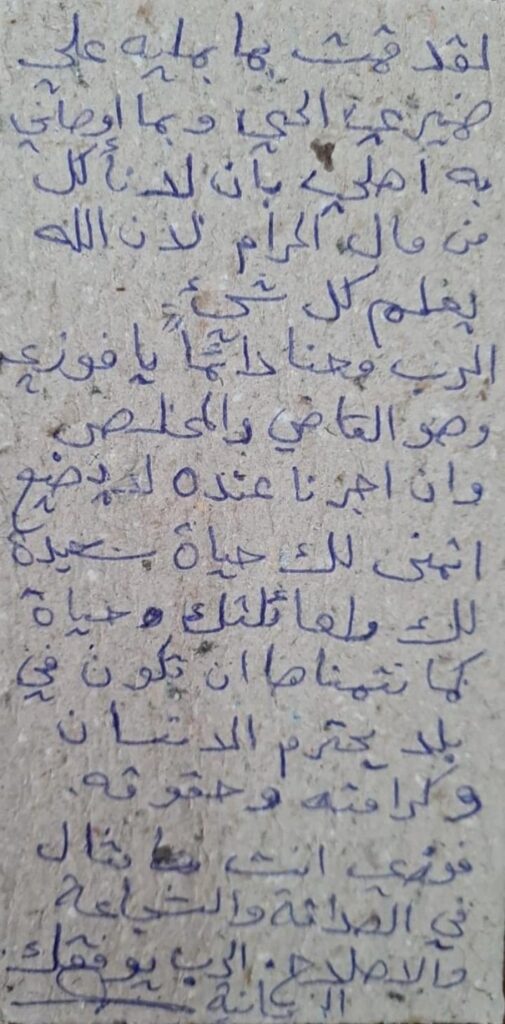 لقد قمت بما يمليه علي
ضميري الحي، وبما اوصاني
به أهلي بأن لا نأكل
من مال الحرام لان الله
يعلم كل شيءٍ
الرب معنا دائماً يا فوزي
وهو القاضي والمخلص
وان اجرنا عنده لا يضيع
اتمنى لك حياة سعيدة
لك ولعائلتك وحياة
كما نتمناها ان تكون في
بلد يحترم الانسان
وكرامته وحقوقه.
فوزي انت مثال
في الصداقة والشجاعة
والاصلاح. الرب يوفقك